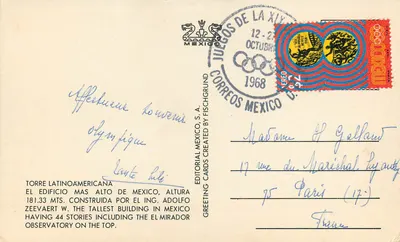 MEXICO
JUEGOS DE LA XIX
12-27
OCTUBRE
1968
CORREOS MEXICO D.
AEREO
olympique
TORRE LATINOAMERICANA
EL EDIFICIO MAS ALTO DE MEXICO, ALTURA
181.33 MTS. CONSTRUIDA POR EL ING. ADOLFO
ZEEVAERT W. THE TALLEST BUILDING IN MEXICO
HAVING 44 STORIES INCLUDING THE EL MIRADOR
OBSERVATORY ON THE TOP.
EDITORIAL MEXICO, S. A.
GREETING CARDS CREATED BY FISCHGRUND
Madame
17 rue du Maréchal Lyautey
75 Paris (17.)
France